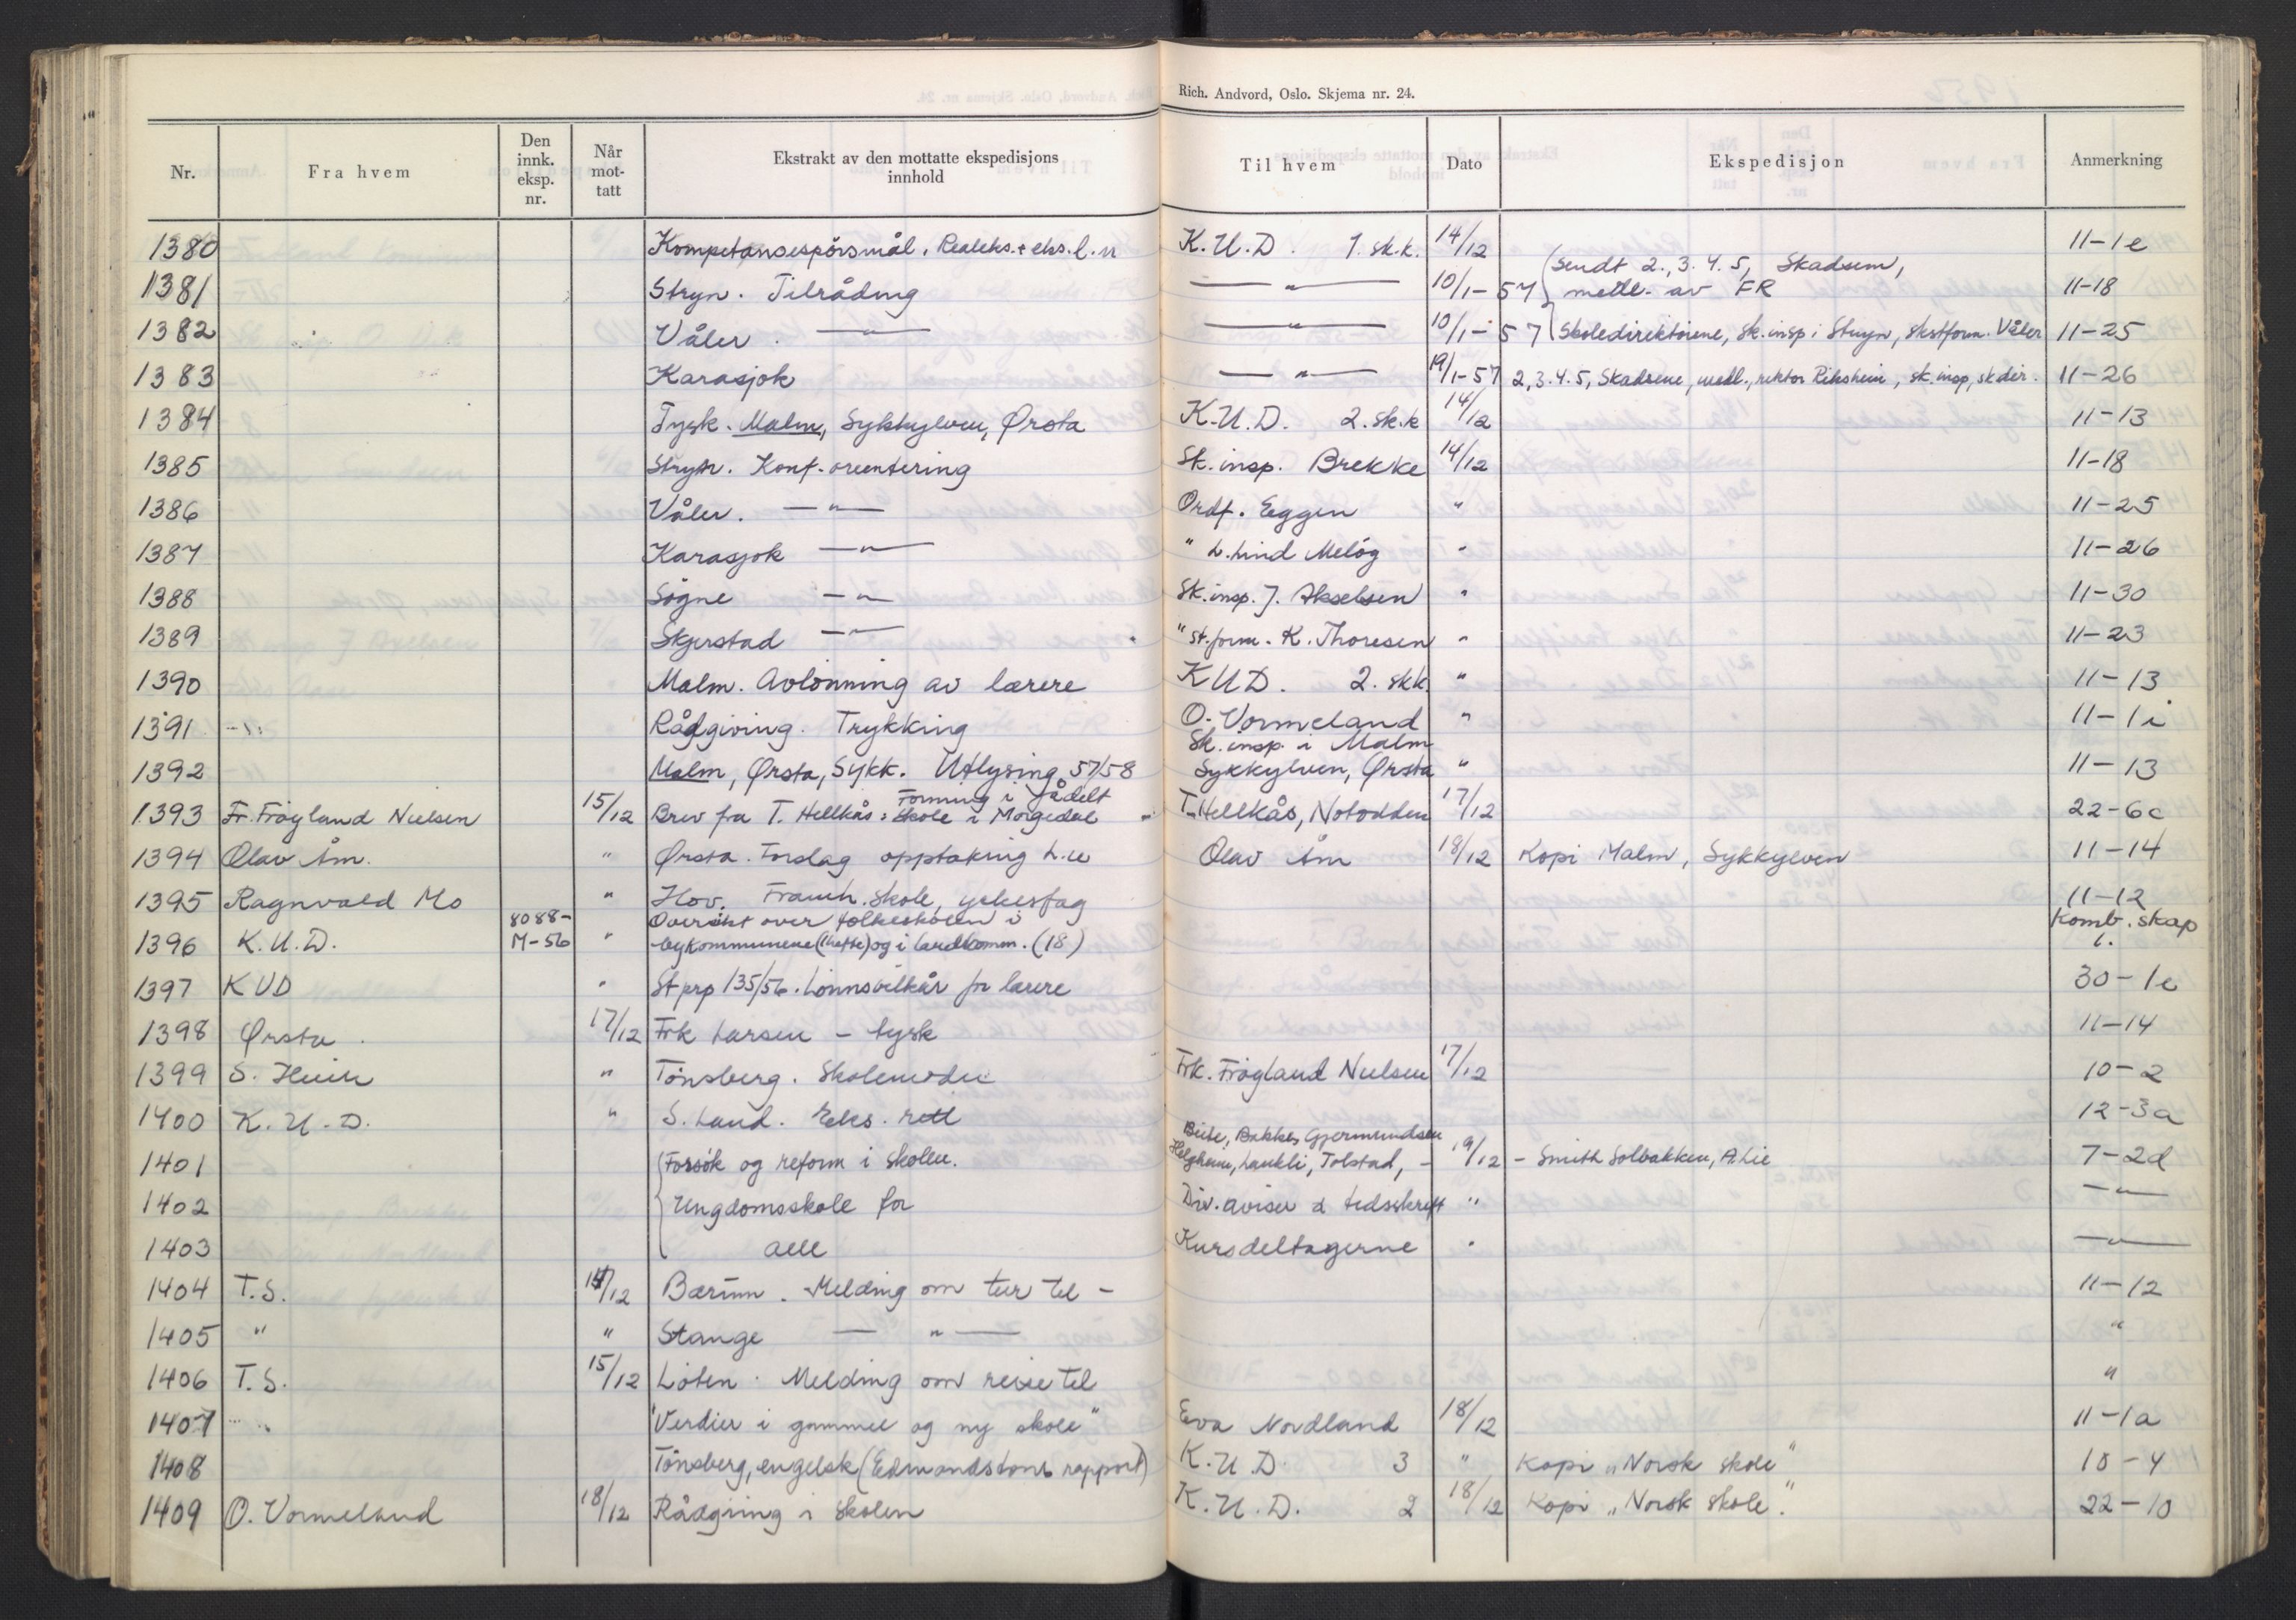 Rich. Andvord, Oslo. Skjema nr. 24.
Nr. Fra hvem Den innk. eksp. nr. Når mot- tatt Ekstrakt av den mottatte ekspedisjons innhold Til hvem Dato Ekspedisjon Anmerkning
1380 Kompetansespörsmål. Realeks. + eks. l. K.U.D. 1. sk.k. 14/12 11-1e
1381 Stryn. Tilråding — " — 10/1-57 (Sendt 2., 3. 4. 5, Skadsem, medl. av FR 11-18
1382 Våler. — " — — " — 10/1-57 Skoledirektörene, sk.insp i Stryn, skstform. Våler 11-25
1383 Karasjok — " — 19/1-57 2, 3. 4. 5, Skadsene, medl., rektor Riksheim, sk.insp, sk dir. 11-26
1384 Tysk. Malm, Sykkylven, Ørsta K.U.D. 2. sk.k 14/12 11-13
1385 Stryn. Konf. orientering Sk. insp. Brekke 14/12 11-18
1386 Våler. — " — Ordf. Eggen " 11-25
1387 Karasjok — " — " L. Lind Melöy " 11-26
1388 Sögne — " — Sk. insp. J. Akselsen " 11-30
1389 Skjerstad — " — " st. form. K. Thoresen " 11-23
1390 Malm. Avlönning av lærere KUD. 2. skk. " 11-13
1391 Rådgiving. Trykking O. Vormeland " 11-1i
1392 Malm, Ørsta, Sykk. Utlysing 57/58 Sk. insp. i Malm Sykkylven, Ørsta " 11-13
1393 Fr. Fröyland Nielsen 15/12 Brev fra T. Hellkås: Forming i fådelt skole i Morgedal T. Hellkås, Notodden 17/12 22-6c
1394 Olav Åm. " Ørsta. Forslag opptaking Olav Åm 18/12 Kopi Malm, Sykkylven 11-14
1395 Ragnvald Mo " Hov. Framh. skole, yrkesfag 11-12
1396 K.U.D. 8088- M-56 " Oversikt over folkeskolen i bykommunene (1 hefte) og i landkomm. (18) Komb. skap 1.
1397 KUD " St prp 135/56. Lönnsvilkår for lærere 30-1e
1398 Ørsta 17/12 Frk Larsen - tysk 11-14
1399 S. " Tönsberg. Skolemodu Frk. Fröyland Nielsen 17/12 10-2
1400 K.U.D. " S. Land. Eks. rett 12-3a
1401 Forsök og reform i skolen. Bakke, Gjermundsen Helgheim, Laukli, Tolstad, - 19/12 - Smith Solbakken, A Lie 7-2d
1402 Ungdomsskole for Div. aviser & tidsskrift " — " —
1403 alle Kursdeltagerne " — " —
1404 T.S. 14/12 Bærum. Melding om tur til - 11-12
1405 " " Stange — " — "
1406 T.S. 15/12 Löten. Melding om reise til "
1407 "Verdier i gammel og ny skole" Eva Nordland 18/12 11-1a
1408 Tönsberg, engelsk (Edmundstons rapport) K.U.D. 3 " Kopi „Norsk skole" 10-4
1409 O. Vormeland 18/12 Rådgiving i skolen K.U.D. 2 18/12 Kopi „Norsk skole". 22-10